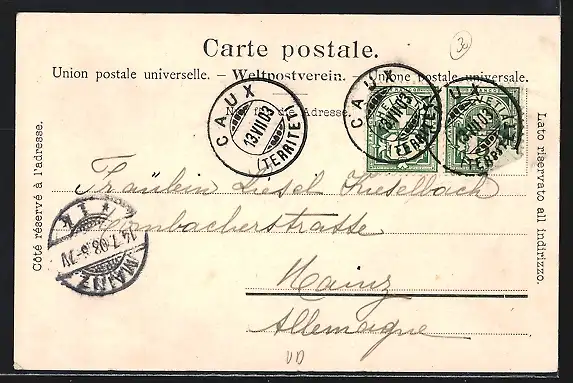 30
Carte postale.
Union postale universelle. – Weltpostverein. – Unione postale universale.
Adresse.
CAUX
13.VII.03
(TERRITET)
CAUX
13.VII.03
(TERRITET)
CAUX
13.VII.03
(TERRITET)
Côté réservé à l'adresse.
Lato riservato all indirizzo.
Fräulein Liesel Kieselbach
Mainz
Allemagne
MAINZ
14.7.03.
VD